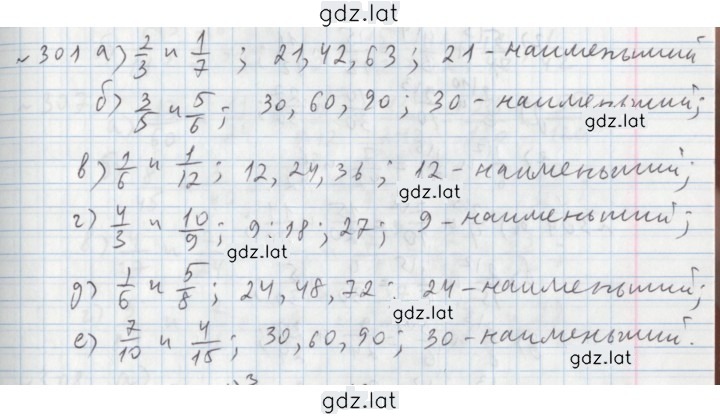 gdz.lat
№ 301 а) 2/3 и 1/7 ; 21, 42, 63 ; 21 - наименьший
б) 3/5 и 5/6 ; 30, 60, 90 ; 30 - наименьший;
gdz.lat
в) 1/6 и 1/12 ; 12, 24, 36 ; 12 - наименьший;
gdz.lat
г) 4/3 и 10/9 ; 9 ; 18 ; 27 ; 9 - наименьший;
gdz.lat
д) 1/6 и 5/8 ; 24, 48, 72 ; 24 - наименьший;
gdz.lat
е) 7/10 и 4/15 ; 30, 60, 90 ; 30 - наименьший.
gdz.lat
gdz.lat